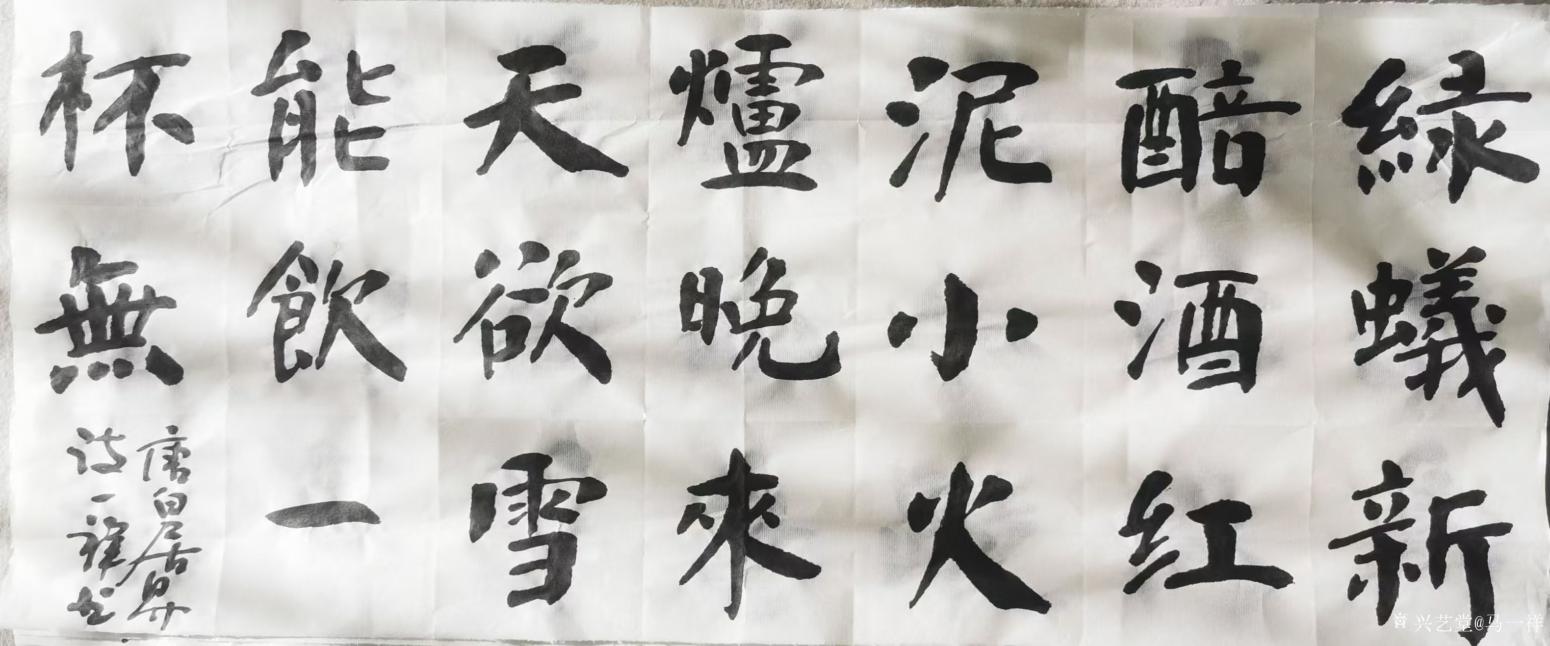 綠蟻新
醅酒红
泥小火
爐晚來
天欲雪
能飲一
杯無
唐白居易
诗一祥书
兴艺堂@马一祥